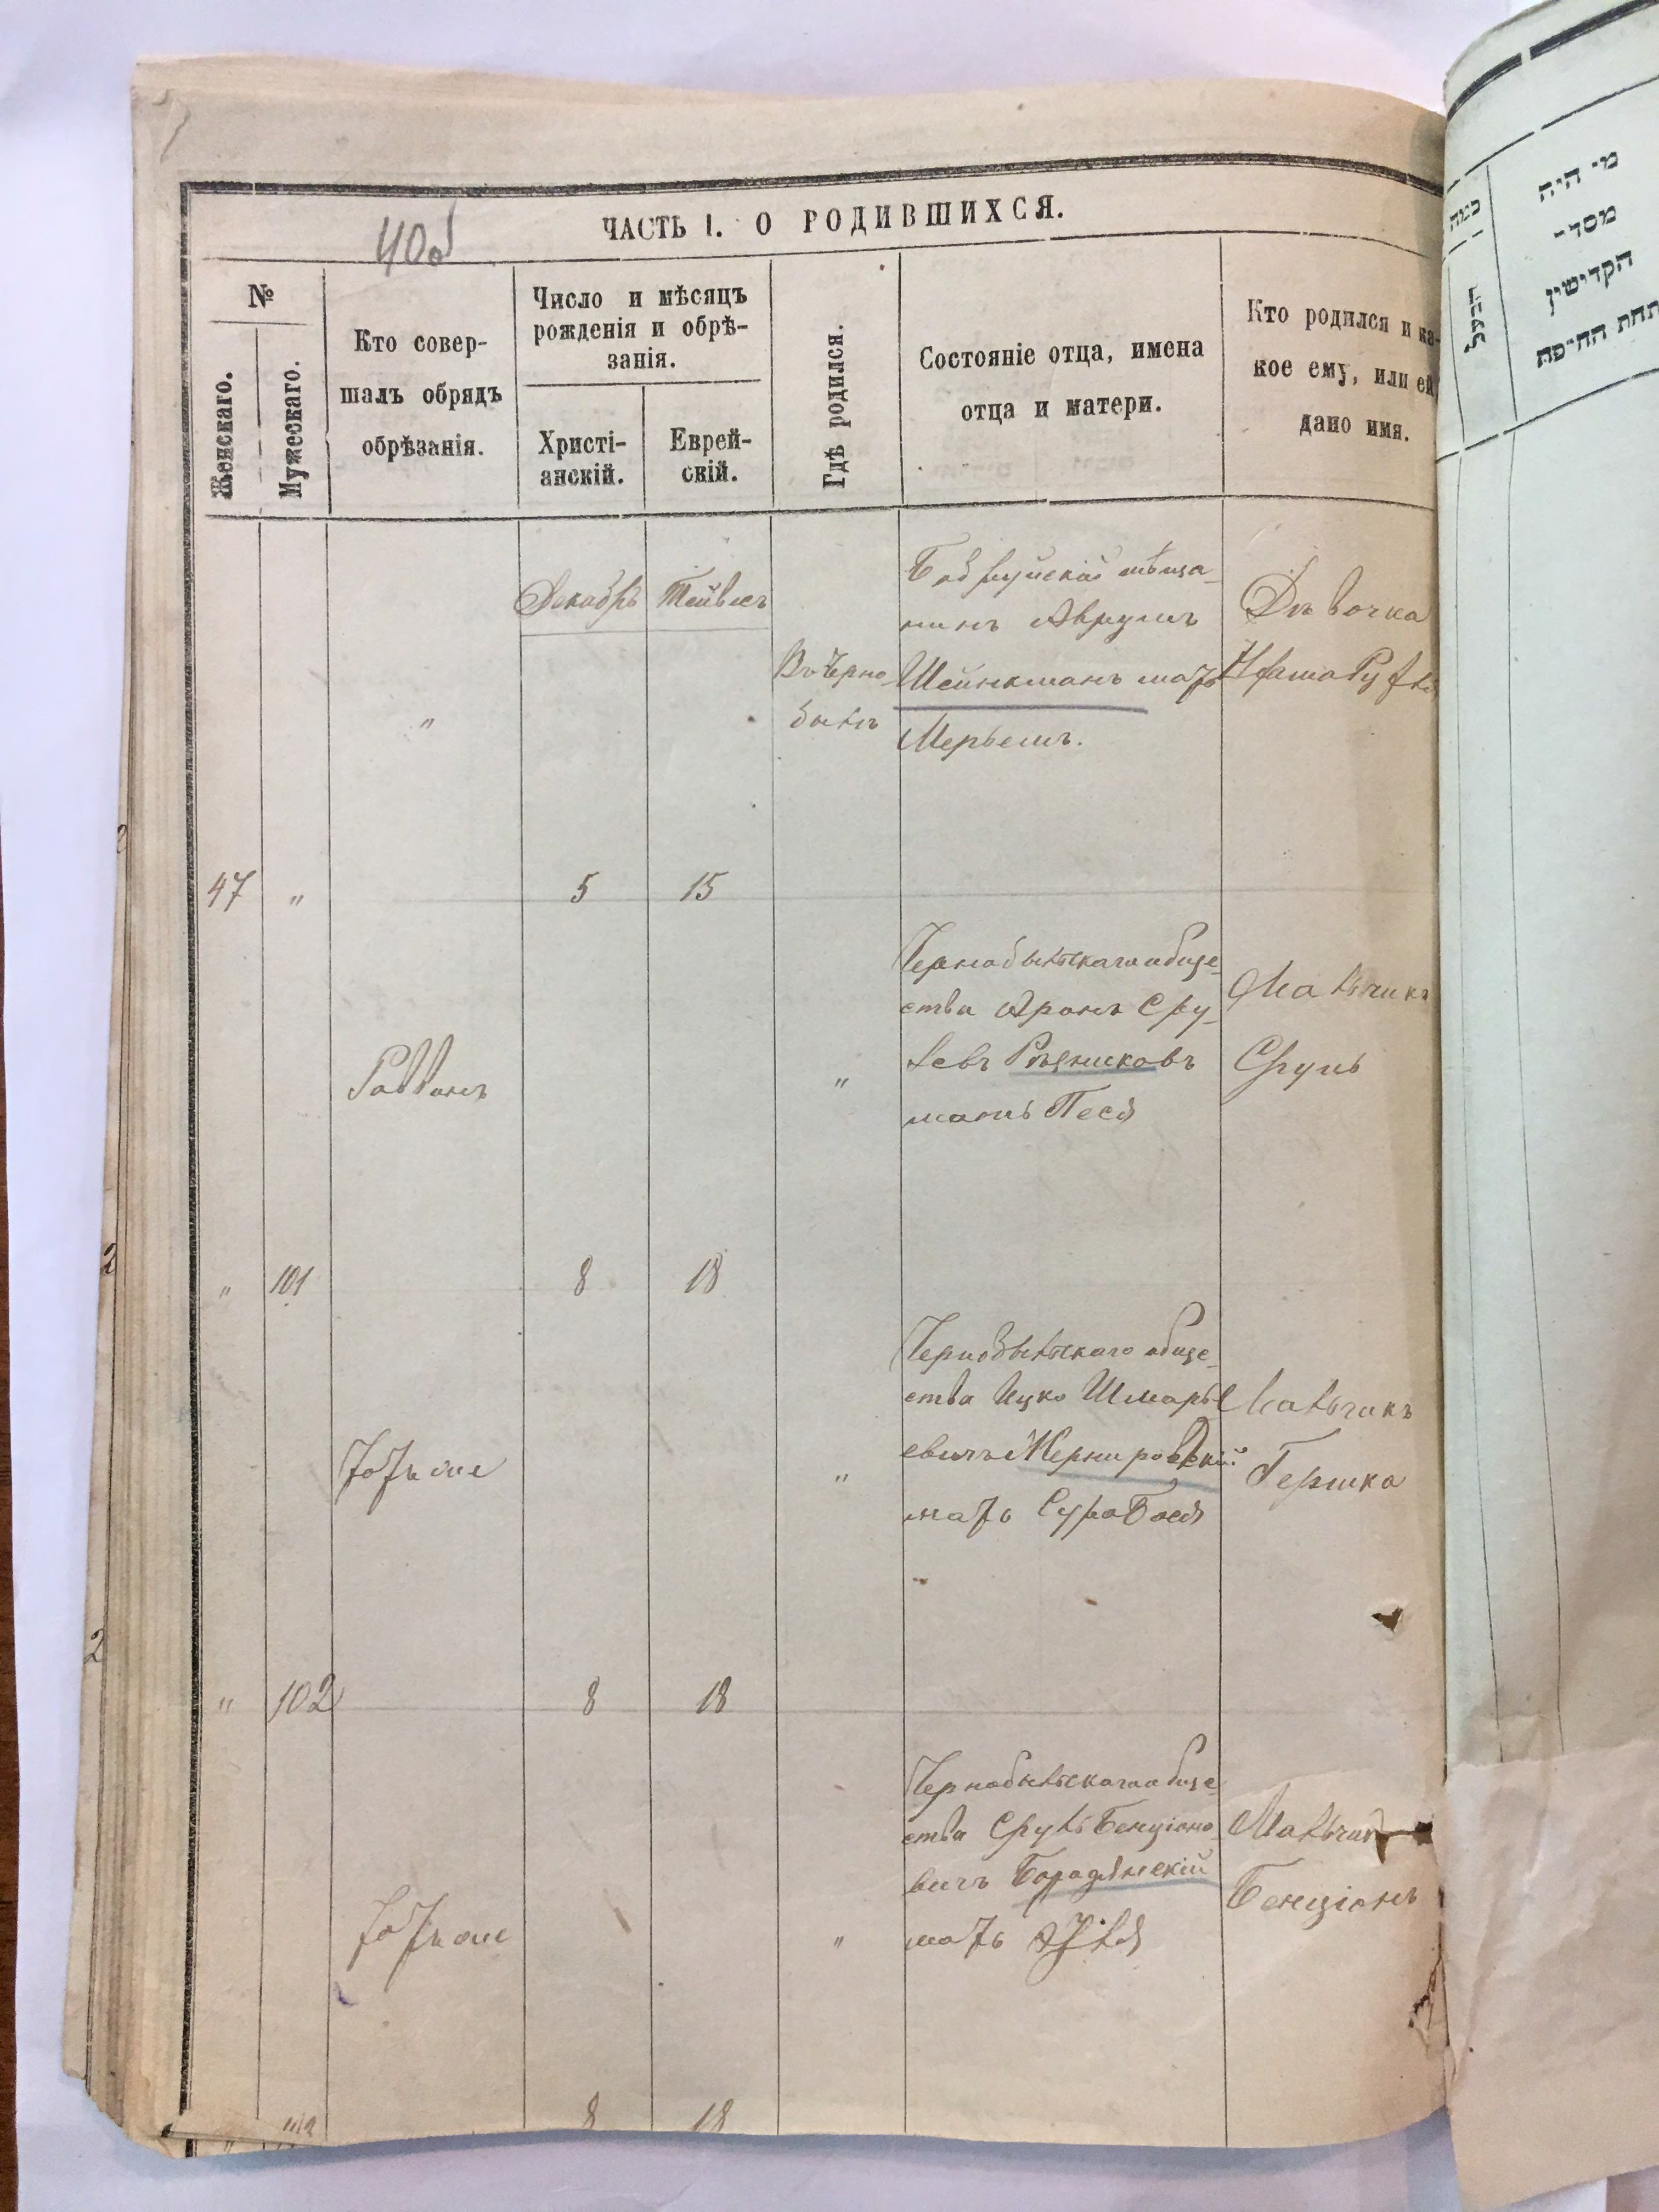 40об
ЧАСТЬ I. О РОДИВШИХСЯ.
№
Женскаго.
Мужескаго.
Кто совер-
шалъ обрядъ
обрѣзанія.
Число и мѣсяцъ
рожденія и обрѣ-
занія.
Христі-
анскій.
Еврей-
скій.
Гдѣ родился.
Состояніе отца, имена
отца и матери.
Кто родился и ка-
кое ему, или ей
дано имя.
47
"
"
Декабрь
5
Тейвесъ
15
Въ Черно
былѣ
Бобруйскій мѣща-
нинъ Аврумъ
Шейнкманъ мать
Мерьемъ.
Дѣвочка
"
101
Раввинъ
8
18
"
Чернобыльскаго обще-
ства Аронъ Сру-
левъ Рѣзниковъ
мать Песя
Мальчикъ
Сруль
"
102
Тотъ же
8
18
"
Чернобыльскаго обще-
ства Ицко Шмарь
евичъ
мать Сура Бася
Мальчикъ
Гершко
"
Тотъ же
8
18
"
Чернобыльскаго обще
ства Сруль Бенціоно
вичъ Бородянскій
мать
Мальчикъ
Бенціонъ
כמה
הדעל
מי היה
מסדר
הקדישין
תחת החופת
2
2
2